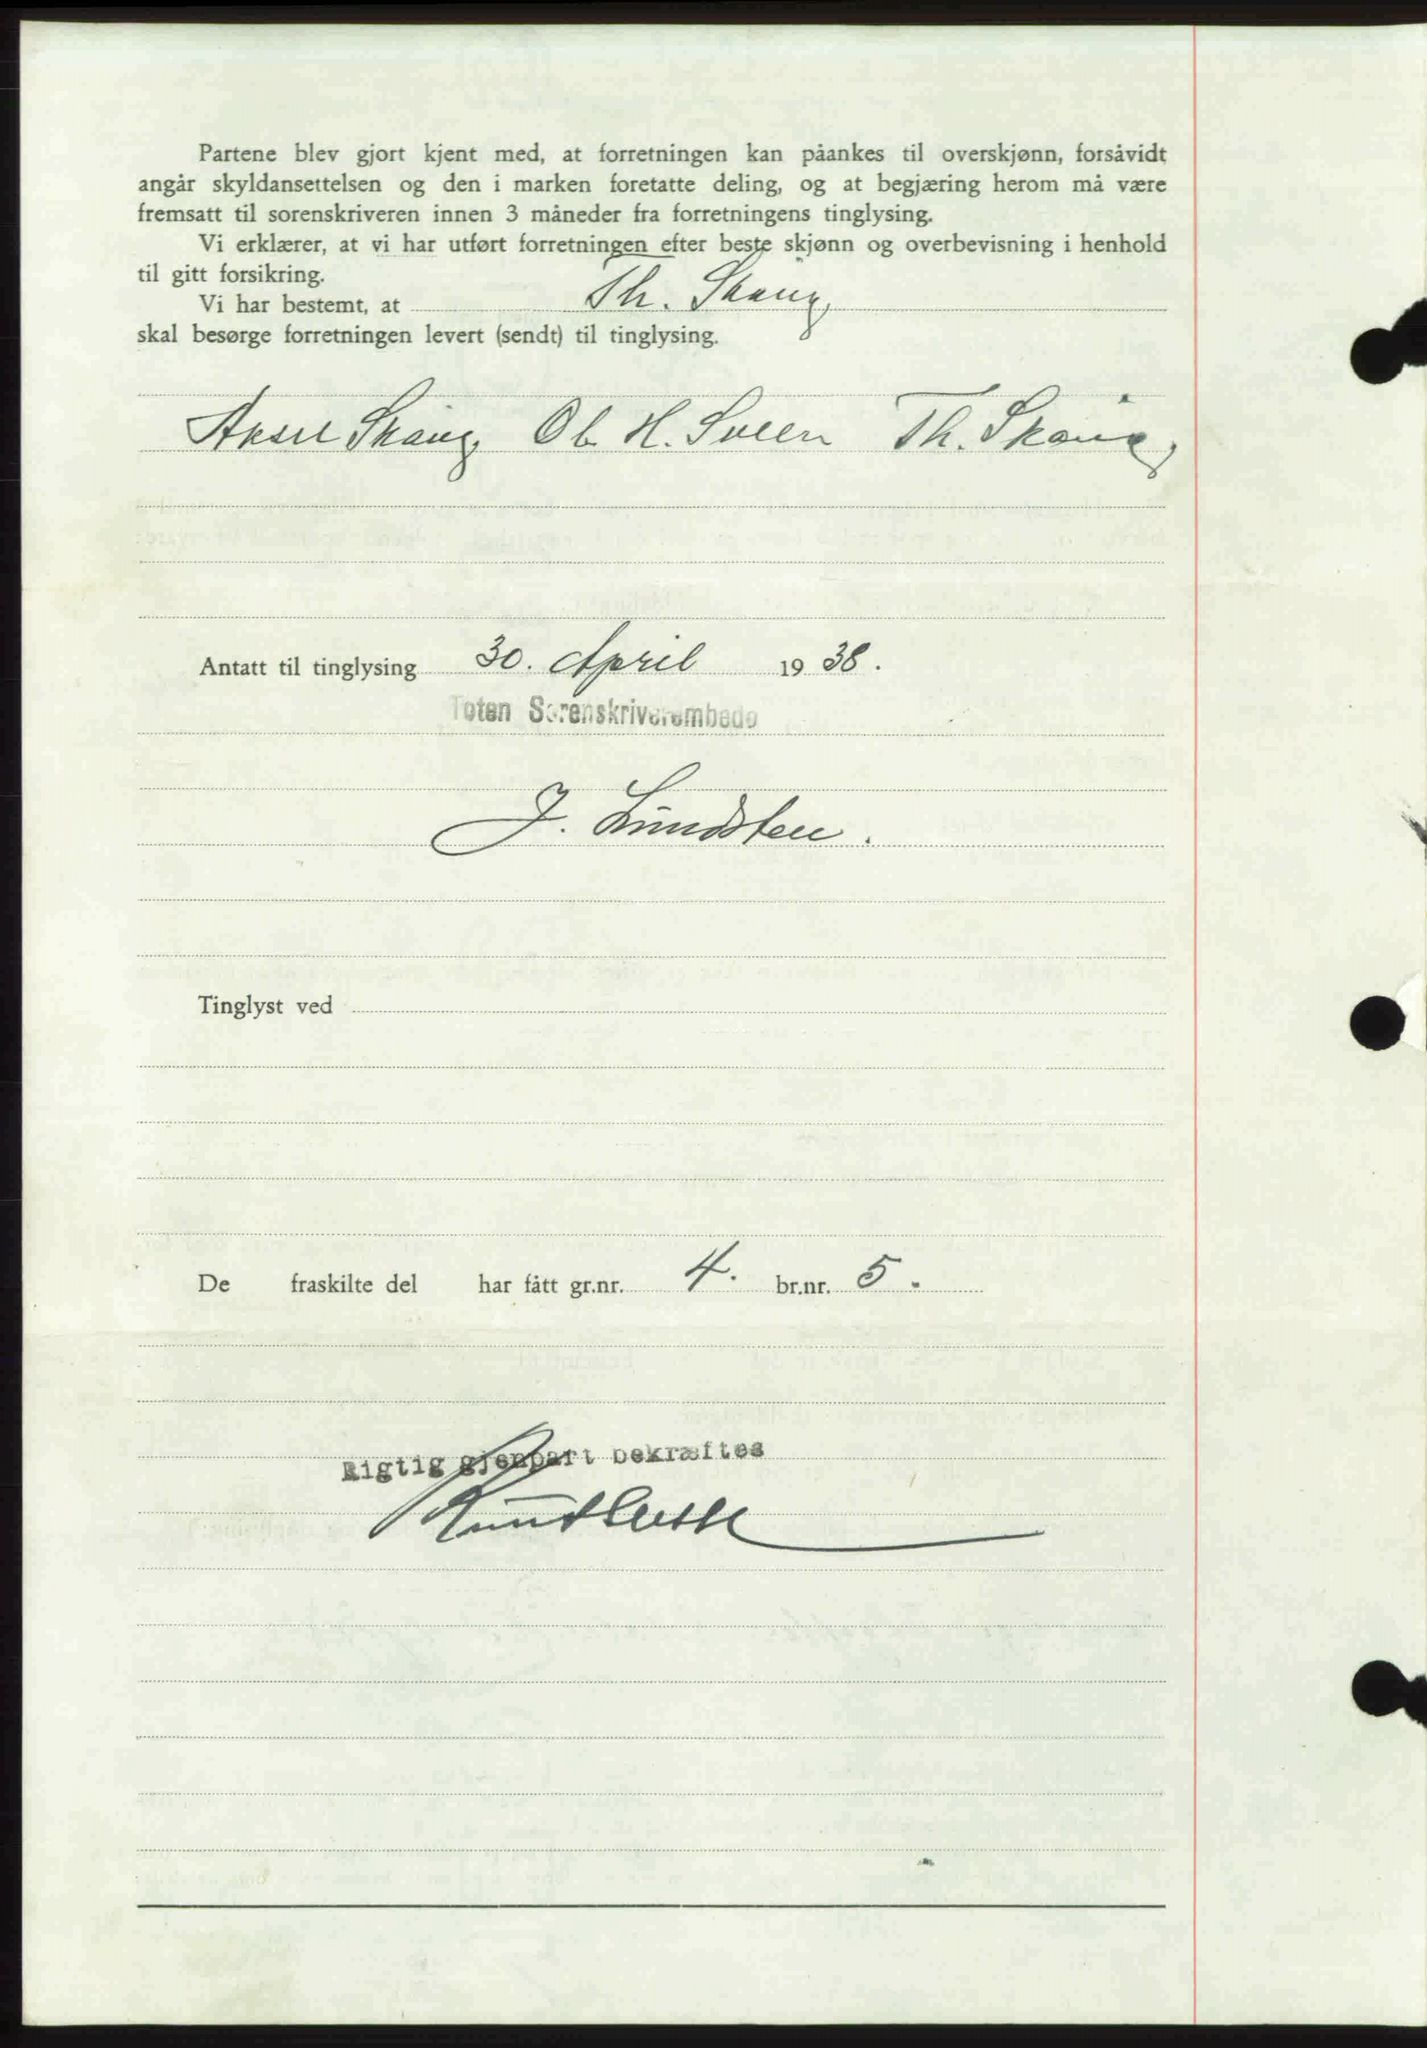 Partene blev gjort kjent med, at forretningen kan påankes til overskjønn, forsåvidt
angår skyldansettelsen og den i marken foretatte deling, og at begjæring herom må være
fremsatt til sorenskriveren innen 3 måneder fra forretningens tinglysing.
Vi erklærer, at vi har utført forretningen efter beste skjønn og overbevisning i henhold
til gitt forsikring.
Vi har bestemt, at Th. Skaug,
skal besørge forretningen levert (sendt) til tinglysing.
Aksel Skaug, Ole H. Sveen Th. Skaug,
Antatt til tinglysing 30. April 1938.
Toten Sorenskriverembede
J. Lundsten.
Tinglyst ved
De fraskilte del har fått gr.nr. 4. br.nr. 5.
Rigtig gjenpart bekræftes